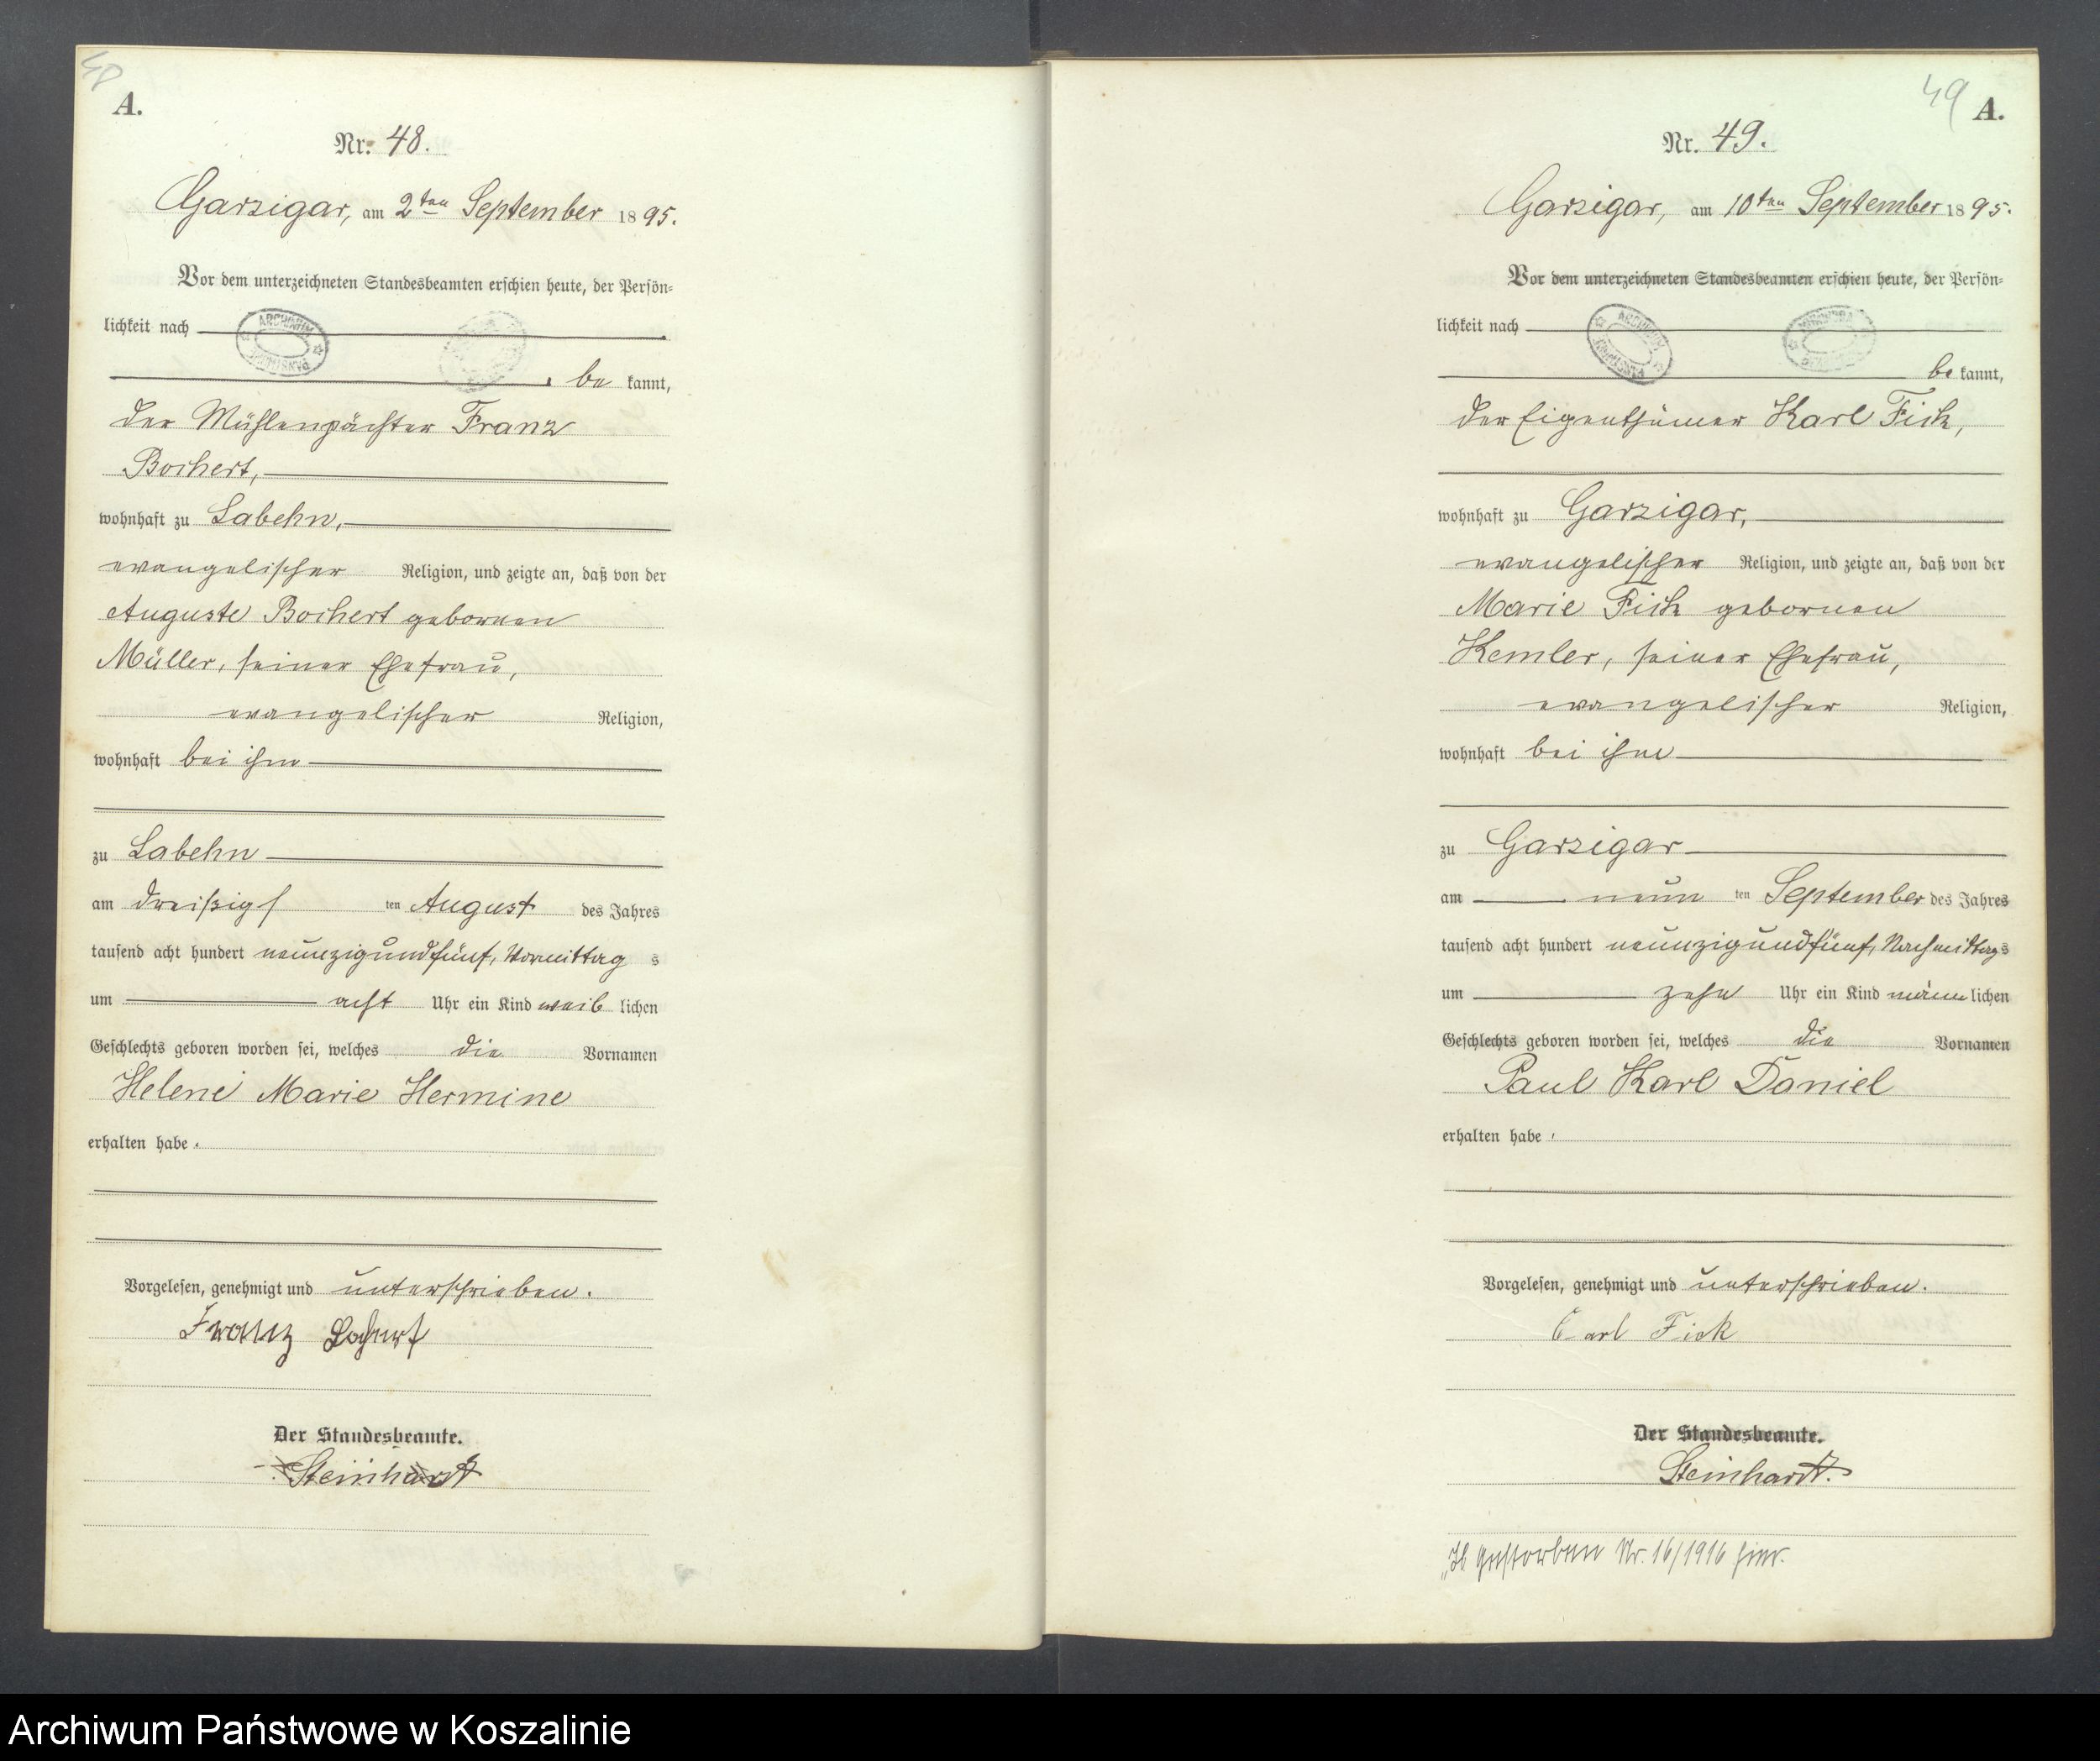 48
A.
Nr. 48.
Garzigar, am 2ten September 1895.
Vor dem unterzeichneten Standesbeamten erschien heute, der Persön-
lichkeit nach
be kannt,
der Mühlenpächter Franz
Bochert,
wohnhaft zu Labehn,
evangelischer Religion, und zeigte an, daß von der
Auguste Bochert gebornen
Müller, seiner Ehefrau,
evangelischer Religion,
wohnhaft bei ihm
zu Labehn
am dreißigs ten August des Jahres
tausend acht hundert neunzigundfünf, Vormittag s
um acht Uhr ein Kind weib lichen
Geschlechts geboren worden sei, welches die Vornamen
Helene Marie Hermine
erhalten habe.
Vorgelesen, genehmigt und unterschrieben.
Franz Bochert
Der Standesbeamte.
Steinhardt
49
A.
Nr. 49.
Garzigar, am 10ten September 1895.
Vor dem unterzeichneten Standesbeamten erschien heute, der Persön-
lichkeit nach
be kannt,
der Eigenthümer Karl Fick,
wohnhaft zu Garzigar,
evangelischer Religion, und zeigte an, daß von der
Marie Fick gebornen
Kemler, seiner Ehefrau,
evangelischer Religion,
wohnhaft bei ihm
zu Garzigar
am neun ten September des Jahres
tausend acht hundert neunzigundfünf, Nachmittags
um zehn Uhr ein Kind männ lichen
Geschlechts geboren worden sei, welches die Vornamen
Paul Karl Daniel
erhalten habe.
Vorgelesen, genehmigt und unterschrieben.
Carl Fick
Der Standesbeamte.
Steinhardt.
gestorben Nr. 16/1916 hier.
Archiwum Państwowe w Koszalinie